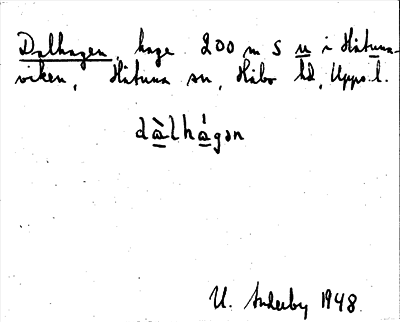 Dalhagen, hage 200 m S u i Håtuna-
viken, Håtuna sn, Håbo hd, Upps. l.
dàlhágən
U. Sunderby 1948.